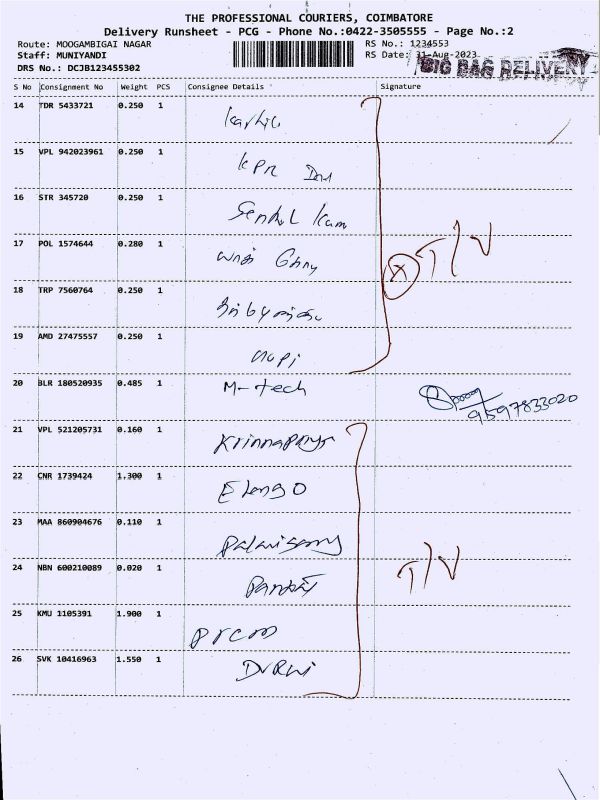 THE PROFESSIONAL COURIERS, COIMBATORE
Delivery Runsheet - PCG - Phone No.:0422-3505555 - Page No.:2
Route: MOOGAMBIGAI NAGAR RS No.: 1234553
Staff: MUNIYANDI RS Date: 31-Aug-2023
DRS No.: DCJB123455302 BIG BAG DELIVERY
S No Consignment No Weight PCS Consignee Details Signature
14 TDR 5433721 0.250 1
15 VPL 942023961 0.250 1 KPR
16 STR 345720 0.250 1
17 POL 1574644 0.280 1
T/V
18 TRP 7560764 0.250 1
19 AMD 27475557 0.250 1
20 BLR 180520935 0.485 1 M-tech
9597833020
21 VPL 521205731 0.160 1
22 CNR 1739424 1.300 1 Elango
23 MAA 860904676 0.110 1 Palanisamy
24 NBN 600210089 0.020 1
T/V
25 KMU 1105391 1.900 1
26 SVK 10416963 1.550 1